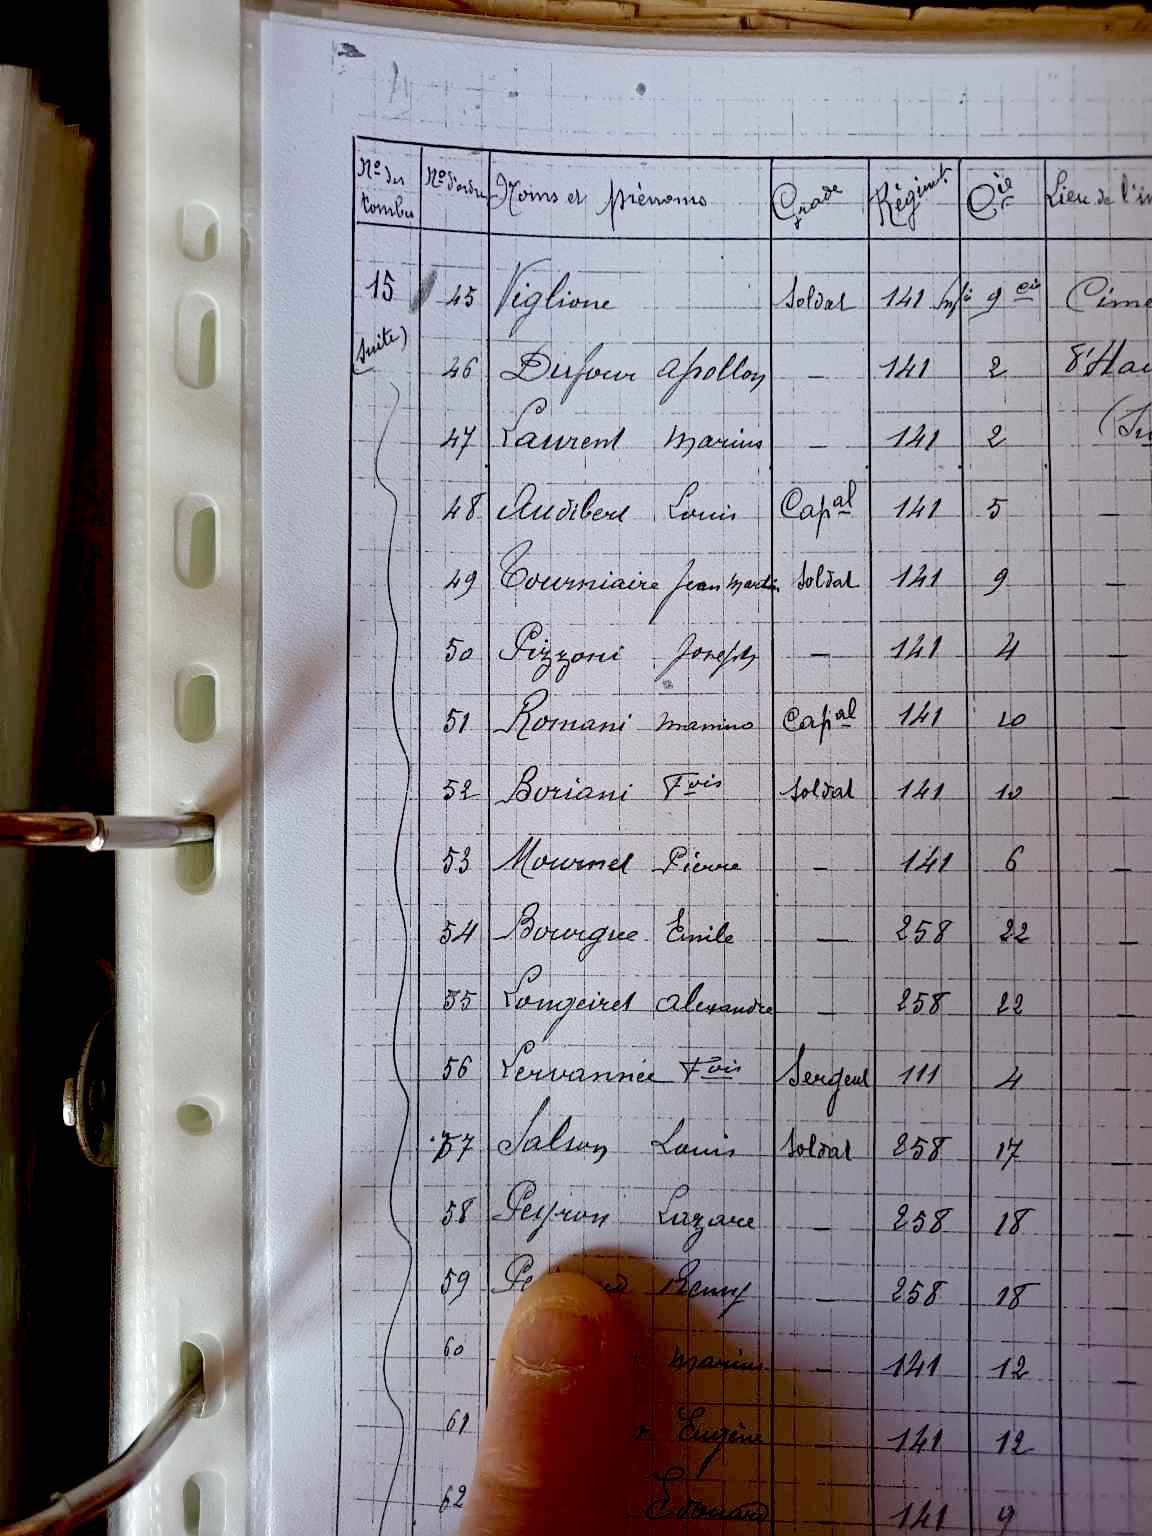 Nº des tombes Nº d'ordre Noms et prénoms Grade Régiment Cie Lieu de l'in
15 45 Viglione Soldat 141 Infie 9 eie Cime
(suite) 46 Dufour Apollon — 141 2 d'Hau
47 Laurent Marius — 141 2 (Su
48 Audibert Louis Capal 141 5 —
49 Tourniaire Jean Martin Soldat 141 9 —
50 Pizzoni Joseph — 141 4 —
51 Romani Capal 141 10 —
52 Boriani Fois Soldat 141 10 —
53 Mournet Pierre — 141 6 —
54 Bourgue Emile — 258 22 —
55 Longeiret Alexandre — 258 22 —
56 Servannie Fois Sergent 111 4 —
57 Salson Louis Soldat 258 17 —
58 Peyron Lazare — 258 18 —
59 Remy — 258 18 —
60 Marius — 141 12 —
61 Eugène — 141 12 —
62 Edouard 141 9